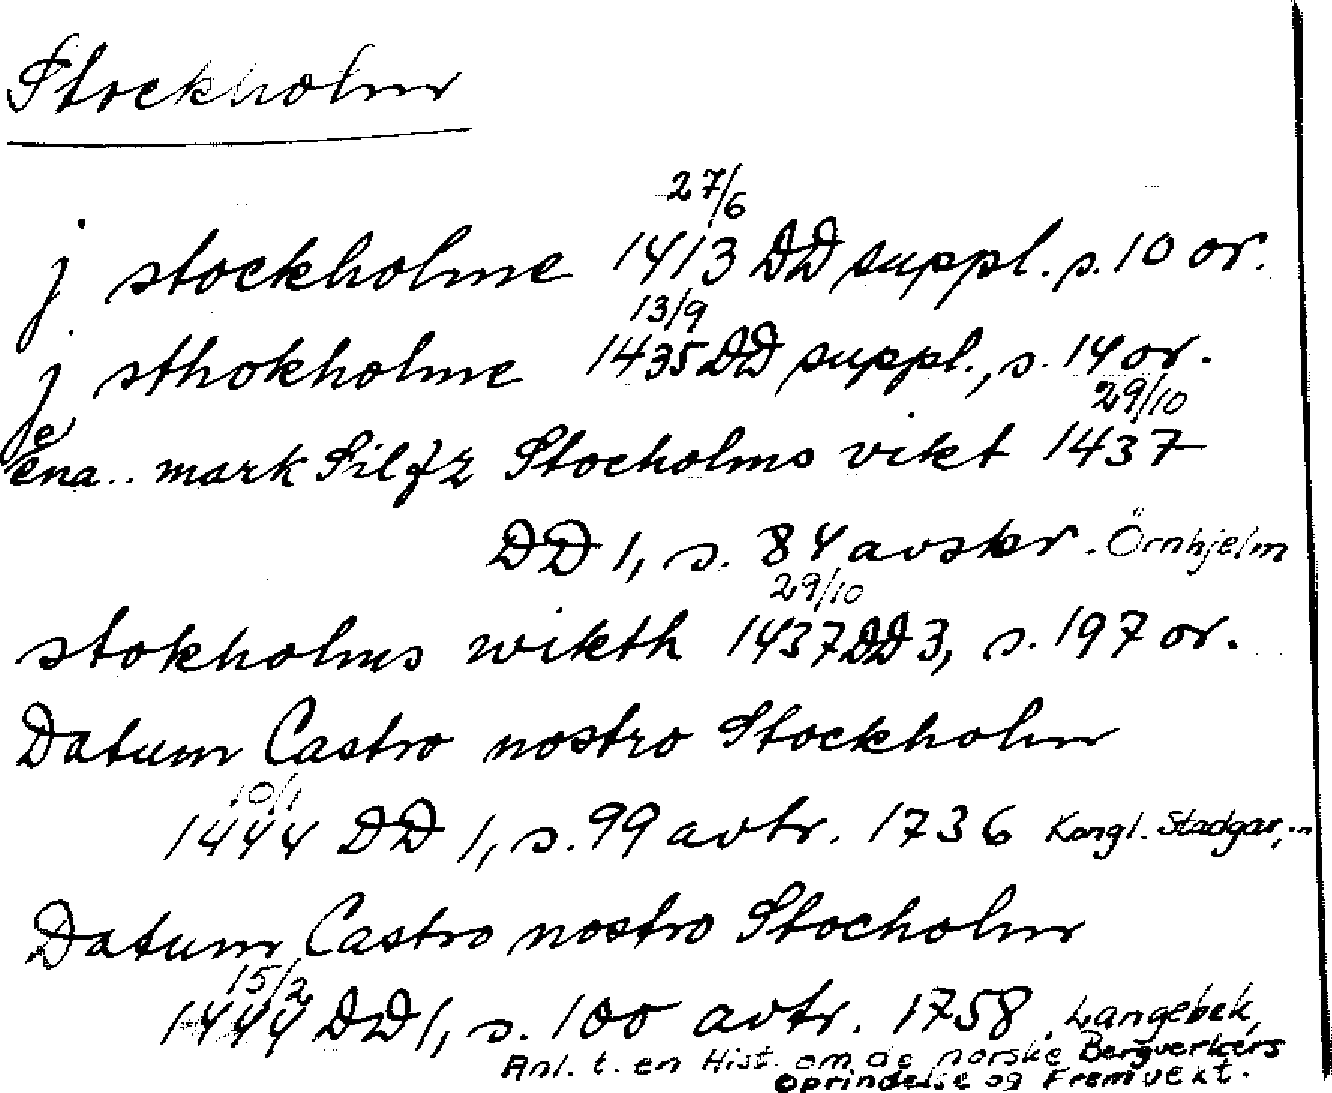 Stockholm
27/6
j stockholme 1413 DD suppl. s. 10 or.
13/9
j sthokholme 1435 DD suppl., s. 14 or.
29/10
ena .. mark Silfz Stocholms vikt 1437
DD 1, s. 84 avskr. Örnhjelm
29/10
stokholms wikth 1437 DD 3, s. 197 or.
Datum Castro nostro Stockholm
10/1
1444 DD 1, s. 99 avtr. 1736 Kongl. Stadgar, ..
Datum Castro nostro Stocholm
15/2
1444 DD 1, s. 100 avtr. 1758, Langebek,
Anl. t. en Hist. om de norske Bergverkers
Oprindelse og Fremvext.